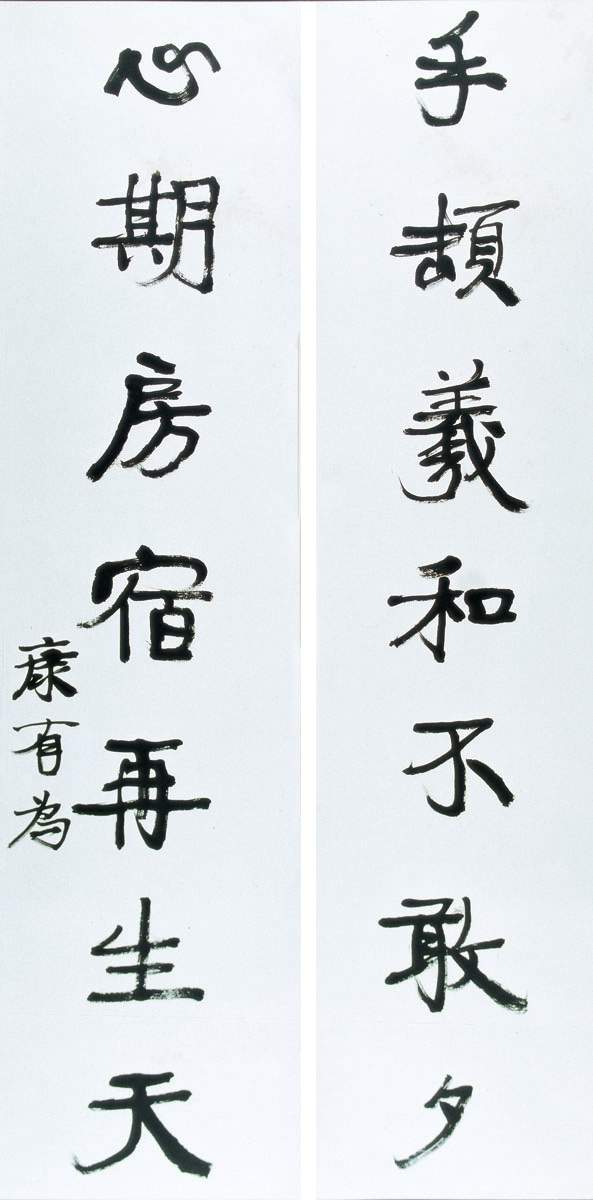 手頓羲和不敢夕
心期房宿再生天
康有為